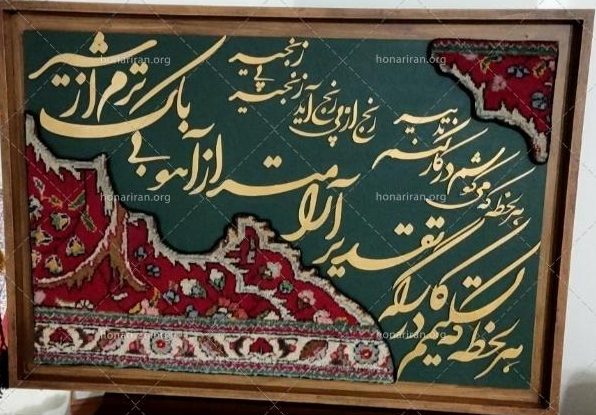 هر لحظه که تسلیمم در کارگه تقدیر
آرامتر از آهو بی باک ترم از شیر
هر لحظه که می کوشم در کار کنم تدبیر
رنج از پی رنج آید زنجیر پی زنجیر
honariran.org
honariran.org
honariran.org
honariran.org
honariran.org
honariran.org